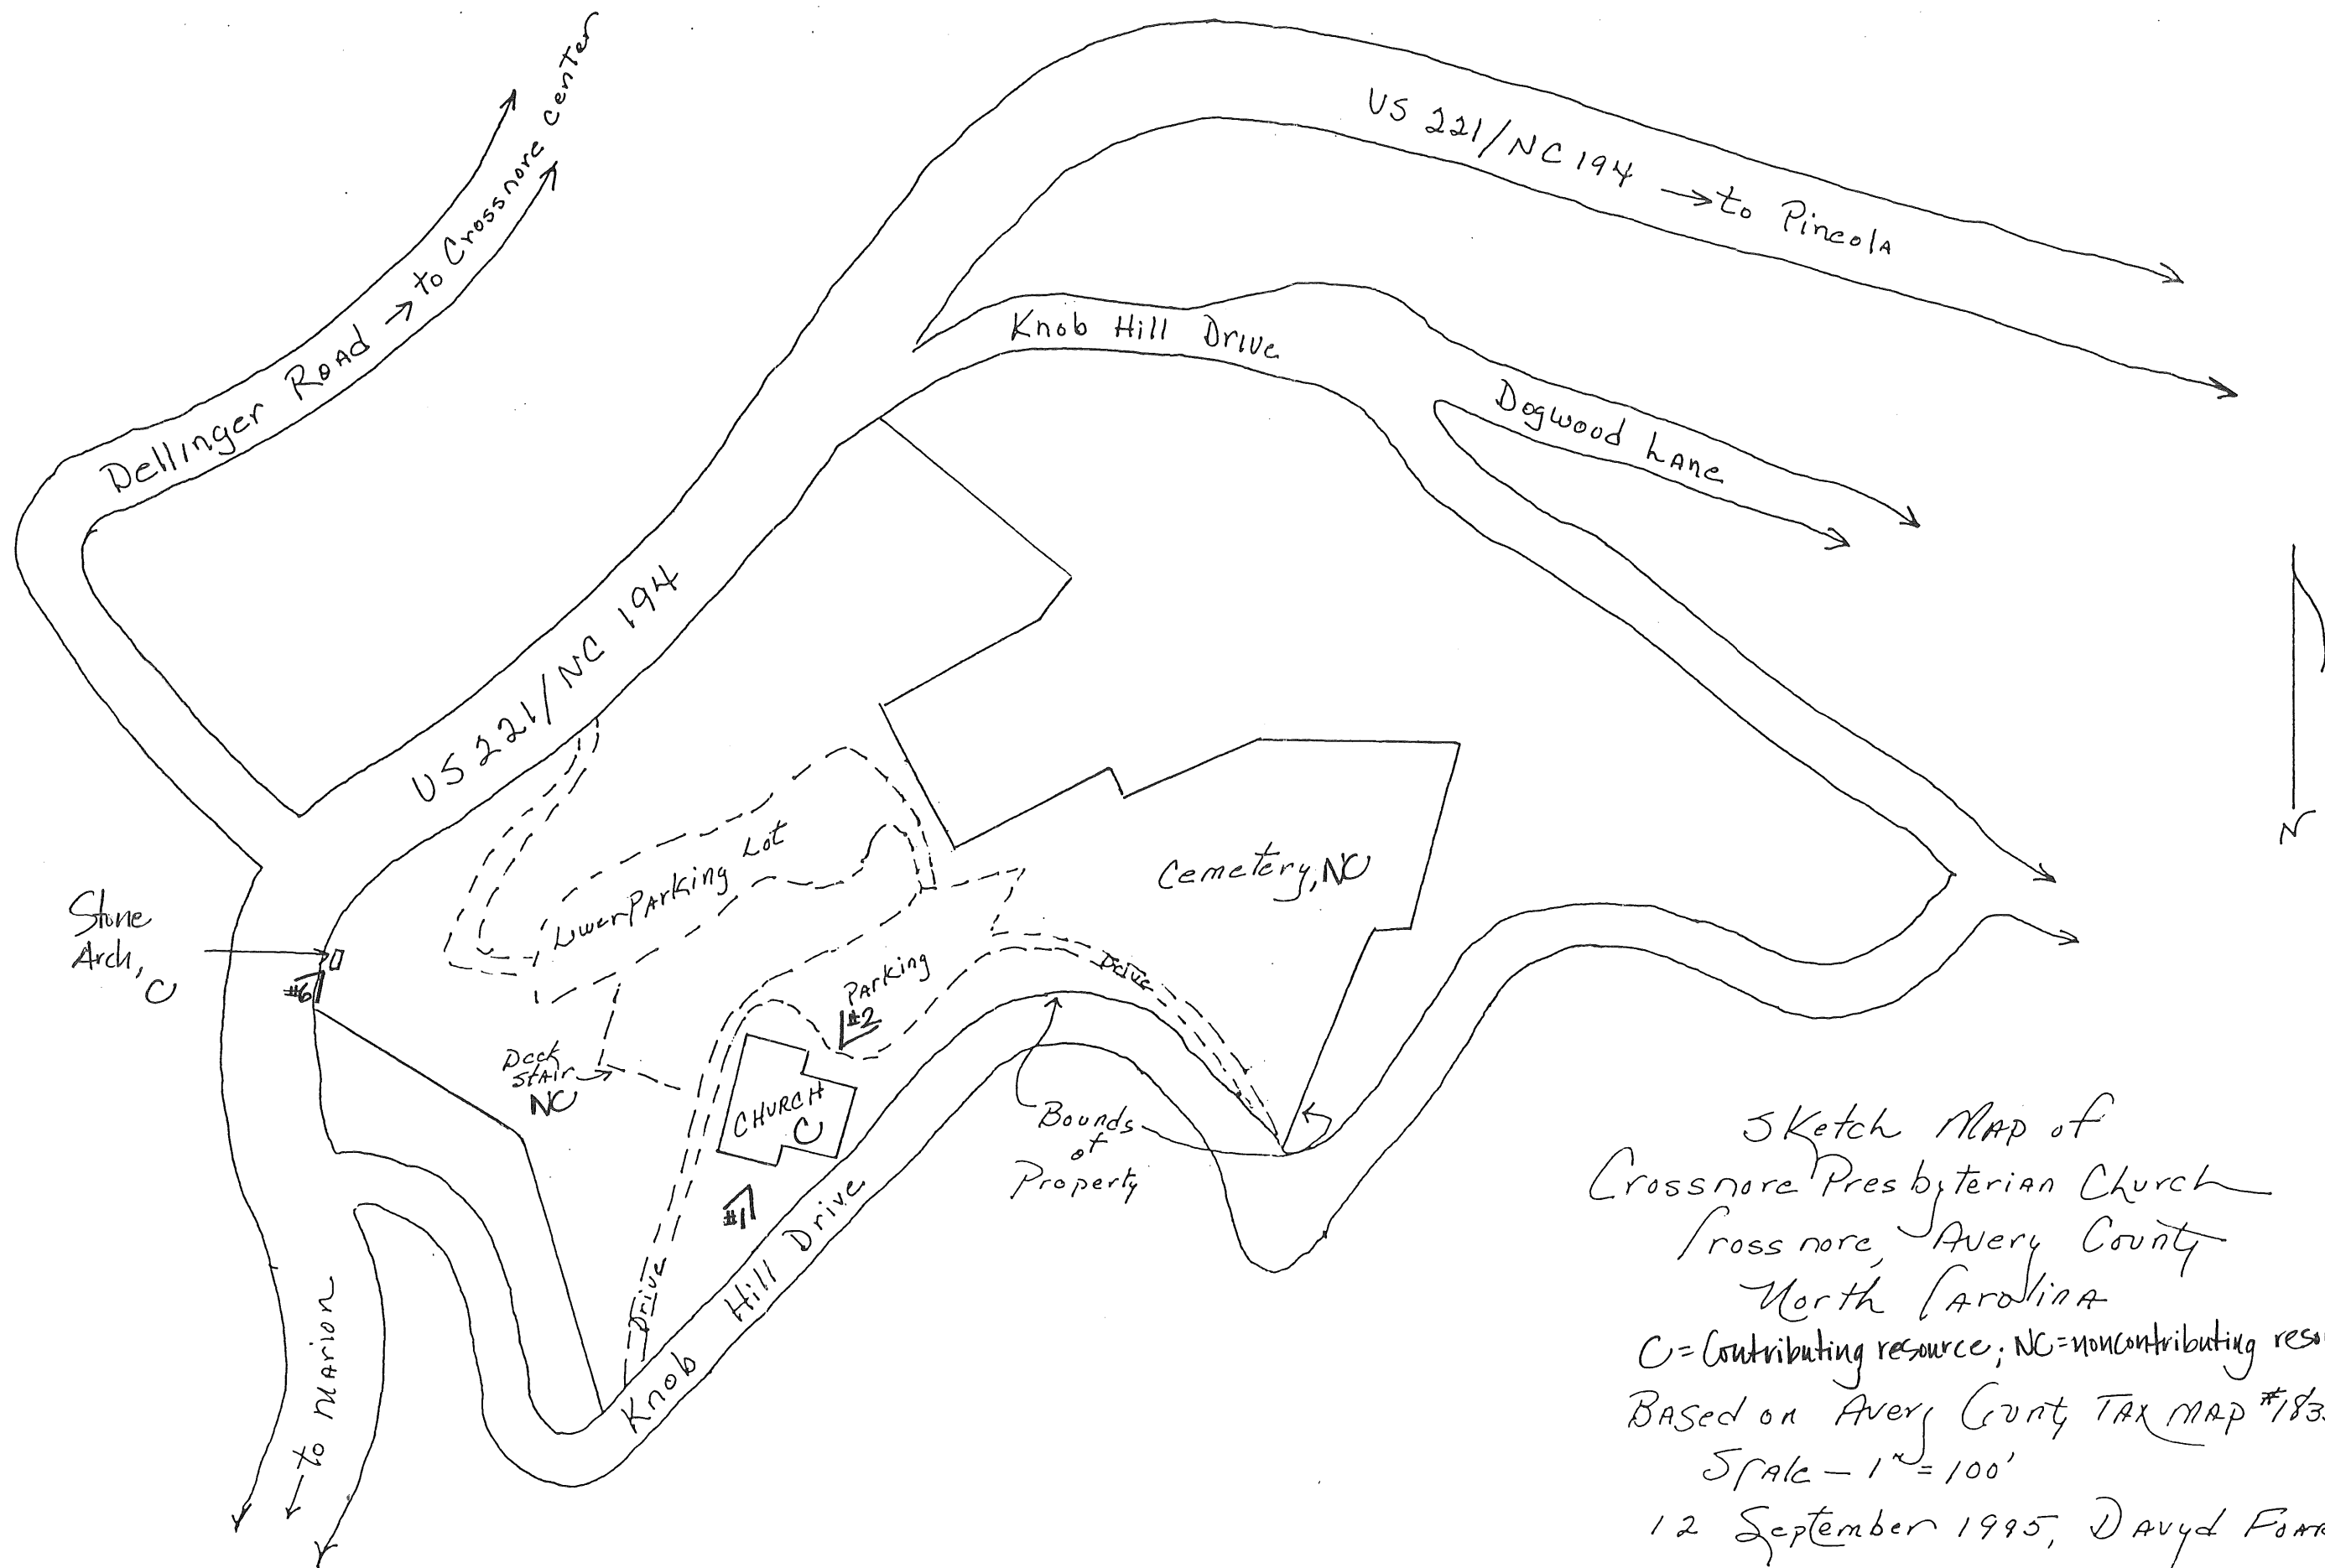 Dellinger Road → to Crossnore center
US 221/NC 194 → to Pineola
Knob Hill Drive
Dogwood Lane
US 221/NC 194
Lower Parking Lot
Cemetery, NC
Stone
Arch,
C
#6
Parking
#2
Drive
Deck
Stair
NC
CHURCH
C
Bounds
of
Property
#1
Drive
Knob Hill Drive
← to Marion
N
Sketch Map of
Crossnore Presbyterian Church
Crossnore, Avery County
North Carolina
C=Contributing resource; NC=noncontributing reso
Based on Avery County Tax Map #183
Scale – 1"=100'
12 September 1995, Davyd